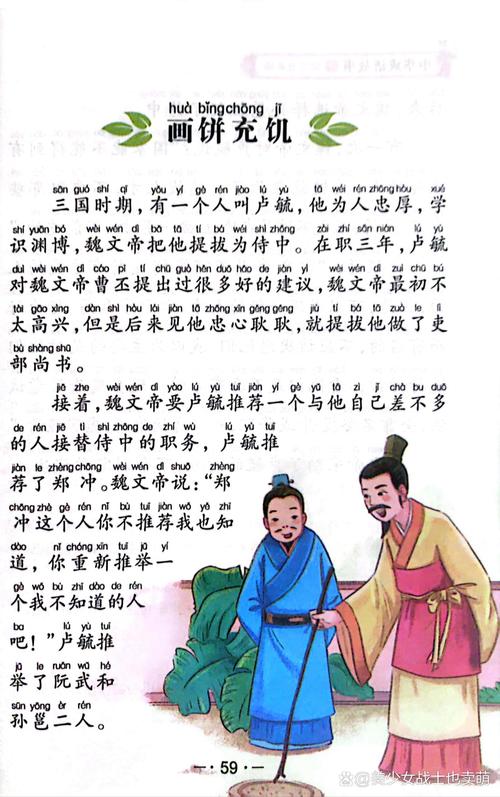 中华成语故事
huà bǐng chōng jī
画饼充饥
sān guó shí qī yǒu yí gè rén jiào lú yù tā wéi rén zhōng hòu xué
三国时期，有一个人叫卢毓，他为人忠厚，学
shí yuān bó wèi wén dì bǎ tā tí bá wéi shì zhōng zài zhí sān nián lú yù
识渊博，魏文帝把他提拔为侍中。在职三年，卢毓
duì wèi wén dì cáo pī tí chū guò hěn duō hǎo de jiàn yì wèi wén dì zuì chū bú
对魏文帝曹丕提出过很多好的建议，魏文帝最初不
tài gāo xìng dàn shì hòu lái jiàn tā zhōng xīn gěng gěng jiù tí bá tā zuò le lì
太高兴，但是后来见他忠心耿耿，就提拔他做了吏
bù shàng shū
部尚书。
jiē zhe wèi wén dì yào lú yù tuī jiàn yí gè yǔ tā zì jǐ chà bu duō
接着，魏文帝要卢毓推荐一个与他自己差不多
de rén jiē tì shì zhōng de zhí wù lú yù tuī
的人接替侍中的职务，卢毓推
jiàn le zhèng chōng wèi wén dì shuō zhèng
荐了郑冲。魏文帝说：“郑
chōng zhè ge rén nǐ bù tuī jiàn wǒ yě zhī
冲这个人你不推荐我也知
dào nǐ chóng xīn tuī jǔ yí
道，你重新推举一
gè wǒ bù zhī dào de rén
个我不知道的人
ba lú yù tuī
吧！”卢毓推
jǔ le ruǎn wǔ hé
举了阮武和
sūn yōng èr rén
孙邕二人。
59
@美少女战士也卖萌